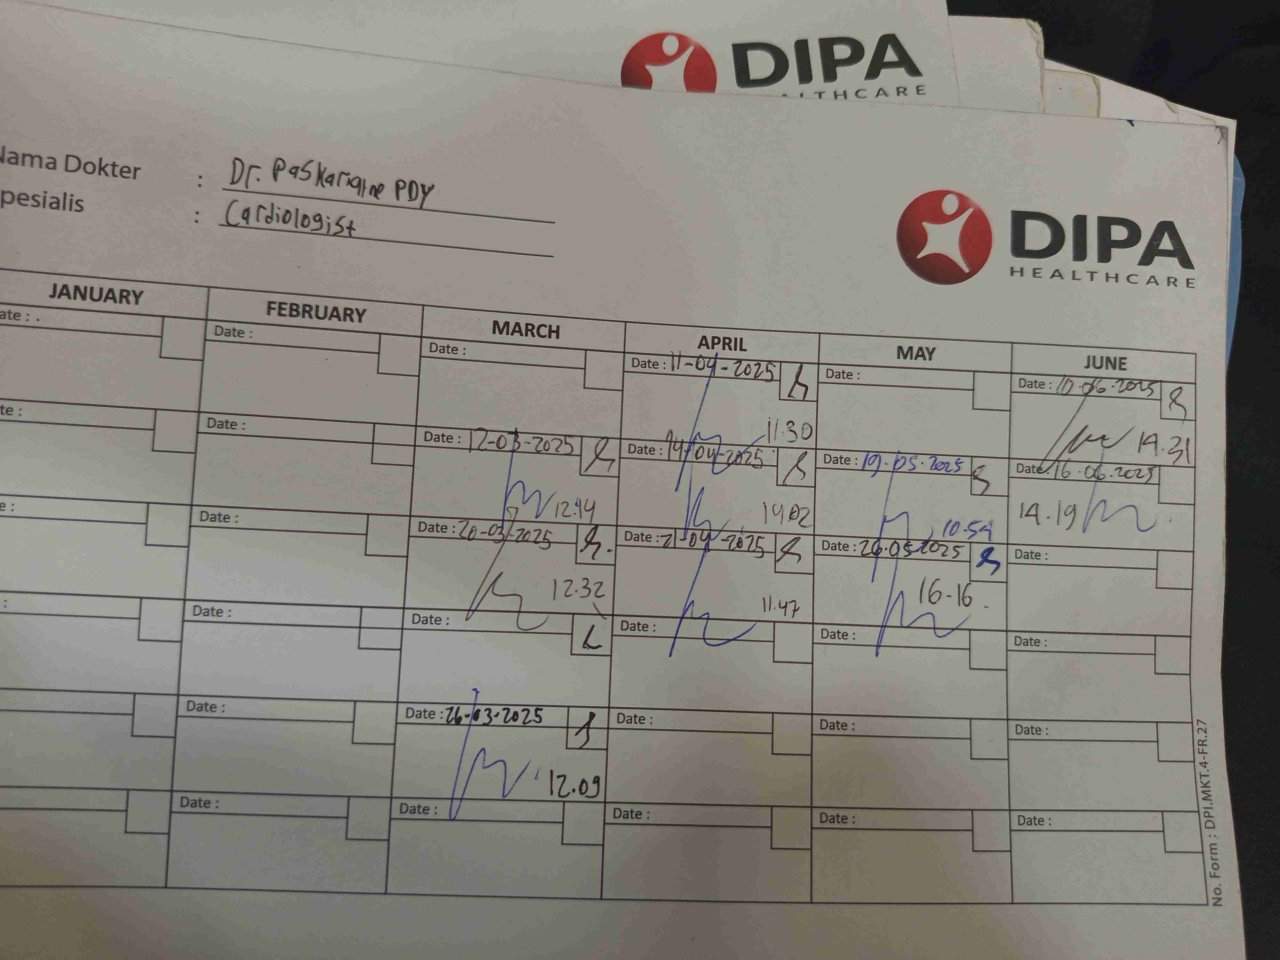 DIPA
HEALTHCARE
DIPA
HEALTHCARE
Nama Dokter : Dr. PDY
Spesialis : Cardiologist
JANUARY FEBRUARY MARCH APRIL MAY JUNE
ate : Date : Date : Date : 11-04-2025 Date : Date : 10-06-2025
11.30 14.31
te : Date : Date : 12-03-2025 Date : 14-04-2025 Date : 19-05-2025 Date : 16-06-2025
12.44 14.02 10.54 14.19
e : Date : Date : 20-03-2025 Date : 21-04-2025 Date : 26-05-2025 Date :
12.32 11.47 16-16
: Date : Date : Date : Date : Date :
Date : Date : 26-03-2025 Date : Date : Date :
12.09
Date : Date : Date : Date : Date :
No. Form : DPI.MKT.4-FR.27